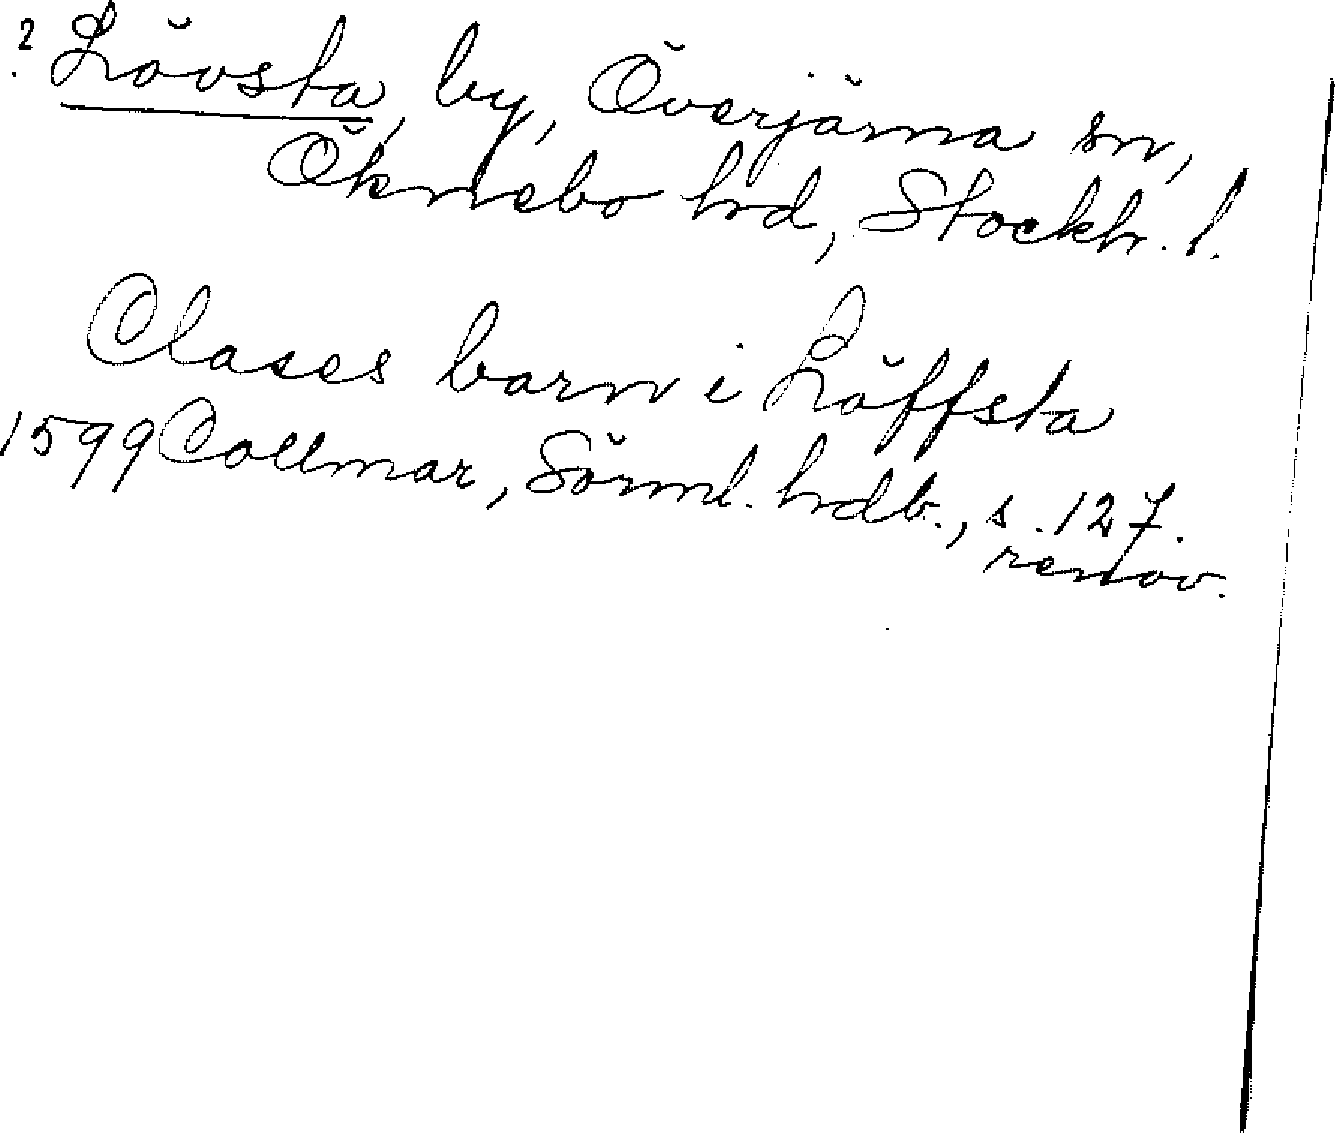 ? Lövsta, by, Överjärna sn,
Öknebo hd, Stockh. l.
Clases barn i Löffsta
1599 Collmar, Sörml. hdb., s. 127.
renov.